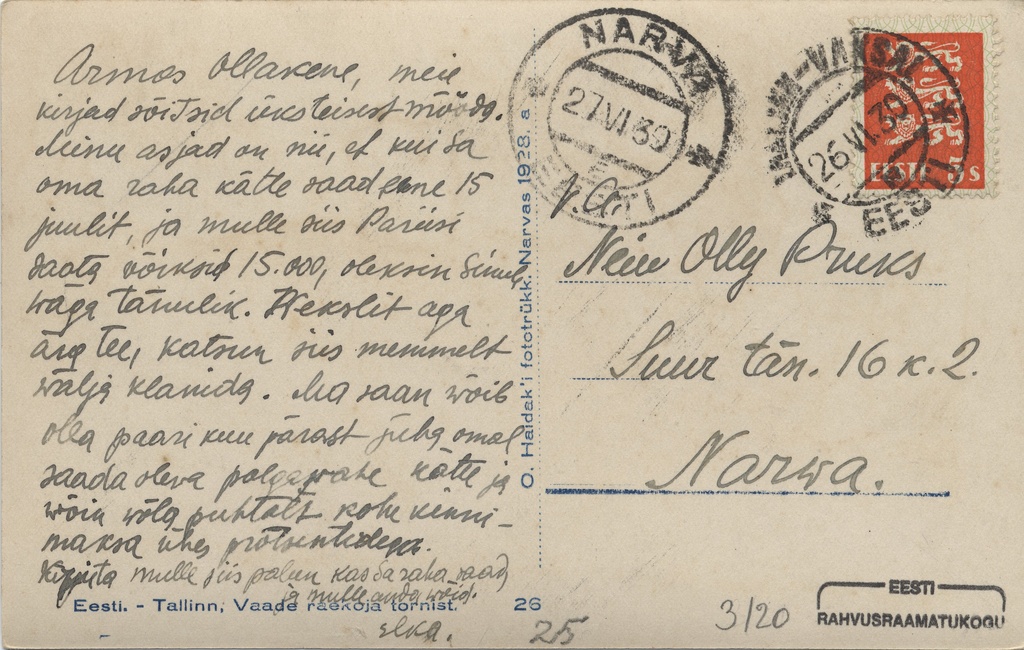 Armas Ollakene, meie
kirjad sõitsid üksteisest mööda.
Minu asjad on nii, et kui Sa
oma raha kätte saad enne 15
juulit, ja mulle siis Pariisi
saata võiksid 15.000, oleksin Sinule
wäga tänulik. Wekslit aga
ära tee, katsun siis memmelt
wälja
Ma saan wõib
olla paari kuu pärast juba omal
saada olewa palgawahe kätte ja
wõin wõla puhtalt kohe kinni-
maksa ühes protsentidega.
Kirjuta mulle siis palun kas Sa raha saad
ja mulle anda wõid.
Elka.
Eesti. - Tallinn, Vaade raekoja tornist. 26
25
O. Haidak'i fototrükk. Narvas 1928. a
NARVA
27 VI 30
EESTI
-VAKSAL
26.VI.30
EESTI
EESTI 5 s
Neiu Olly Pruks
Suur tän. 16 k. 2.
Narwa.
3/20
EESTI
RAHVUSRAAMATUKOGU